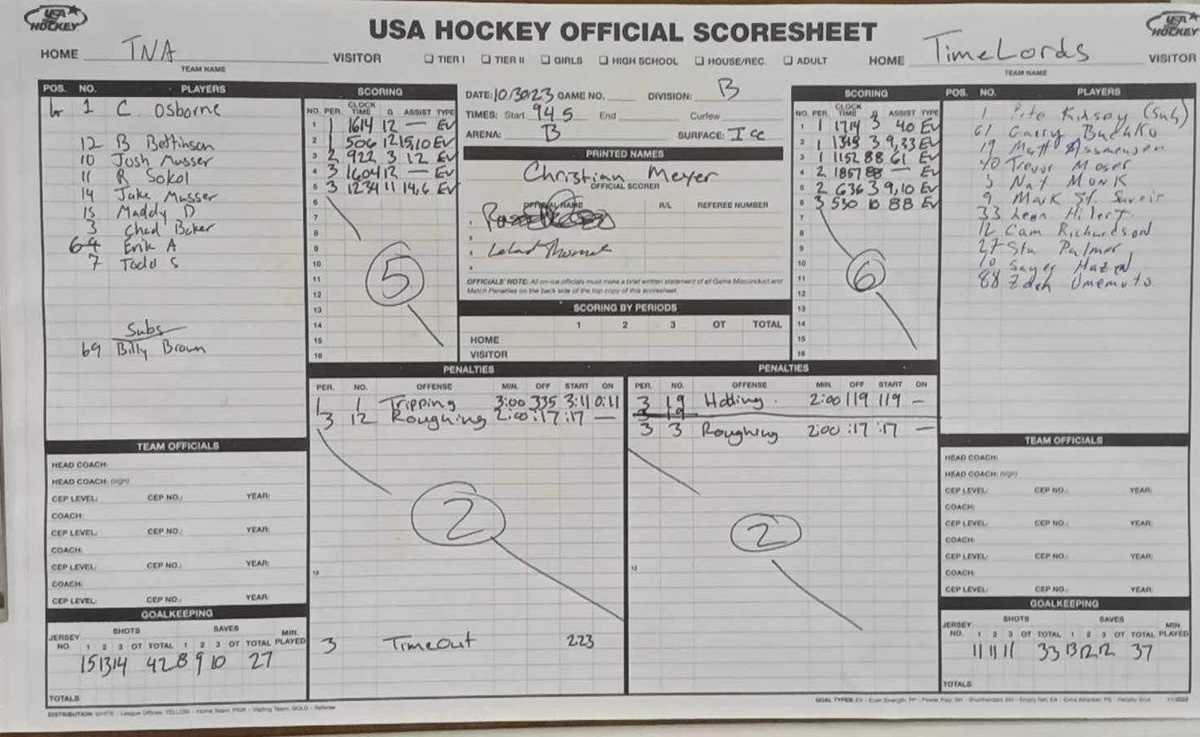 USA HOCKEY
USA HOCKEY OFFICIAL SCORESHEET
USA HOCKEY
HOME TNA VISITOR
TEAM NAME
☐ TIER I ☐ TIER II ☐ GIRLS ☐ HIGH SCHOOL ☐ HOUSE/REC. ☐ ADULT
HOME TimeLords VISITOR
TEAM NAME
POS. NO. PLAYERS
1 C Osborne
12 B Bettinson
10 Josh Musser
11 R Sokol
14 Jake Musser
15 Maddy D
3 Chad Baker
Erik A
7 Todd S
Subs
69 Billy Brown
SCORING
NO. PER. CLOCK TIME G ASSIST TYPE
1 1 1614 12 — EV
2 1 506 12 15,10 EV
3 2 922 3 12 EV
4 3 1604 12 — EV
5 3 1234 11 14,6 EV
6
7
8
9
10
11
12
13
14
15
16
5
DATE: 10/30/23 GAME NO. DIVISION: B
TIMES: Start 945 End Curfew
ARENA: B SURFACE: Ice
PRINTED NAMES
Christian Meyer
OFFICIAL SCORER
OFFICIAL NAME R/L REFEREE NUMBER
1
2
3
4
OFFICIALS' NOTE: All on-ice officials must make a brief written statement of all Game Misconduct and
Match Penalties on the back side of the top copy of this scoresheet.
SCORING BY PERIODS
1 2 3 OT TOTAL
HOME
VISITOR
SCORING
NO. PER. CLOCK TIME ASSIST TYPE
1 1 1714 3 40 EV
2 1 1315 3 9,33 EV
3 1 1152 88 61 EV
4 2 1857 88 — EV
5 2 636 3 9,10 EV
6 3 530 10 88 EV
7
8
9
10
11
12
13
14
15
16
6
POS. NO. PLAYERS
1 Pete Kinsey (Sub)
61 Garry Buchko
19 Matt
40 Trevor Moser
3 Nat Munk
9 Mark St.
33 Leon
12 Cam Richardson
27 Stu Palmer
10 Sayer Hazen
88 Zden Umemoto
PENALTIES
PER. NO. OFFENSE MIN. OFF START ON
1 1 Tripping 3:00 335 3:11 0:11
3 12 Roughing 2:00 :17 :17 —
2
12
3 Timeout 223
PENALTIES
PER. NO. OFFENSE MIN. OFF START ON
3 19 Holding. 2:00 119 119 —
3 19
3 3 Roughing 2:00 :17 :17 —
2
12
TEAM OFFICIALS
HEAD COACH:
HEAD COACH: (sign)
CEP LEVEL: CEP NO.: YEAR:
COACH:
CEP LEVEL: CEP NO.: YEAR:
COACH:
CEP LEVEL: CEP NO.: YEAR:
COACH:
CEP LEVEL: CEP NO.: YEAR:
GOALKEEPING
JERSEY NO. SHOTS SAVES MIN. PLAYED
1 2 3 OT TOTAL 1 2 3 OT TOTAL
15 13 14 42 8 9 10 27
TOTALS
TEAM OFFICIALS
HEAD COACH:
HEAD COACH: (sign)
CEP LEVEL: CEP NO.: YEAR:
COACH:
CEP LEVEL: CEP NO.: YEAR:
COACH:
CEP LEVEL: CEP NO.: YEAR:
COACH:
CEP LEVEL: CEP NO.: YEAR:
GOALKEEPING
JERSEY NO. SHOTS SAVES MIN. PLAYED
1 2 3 OT TOTAL 1 2 3 OT TOTAL
11 11 11 33 13 12 12 37
TOTALS
DISTRIBUTION: WHITE - League Offices, YELLOW - Home Team, PINK - Visiting Team, GOLD - Referee